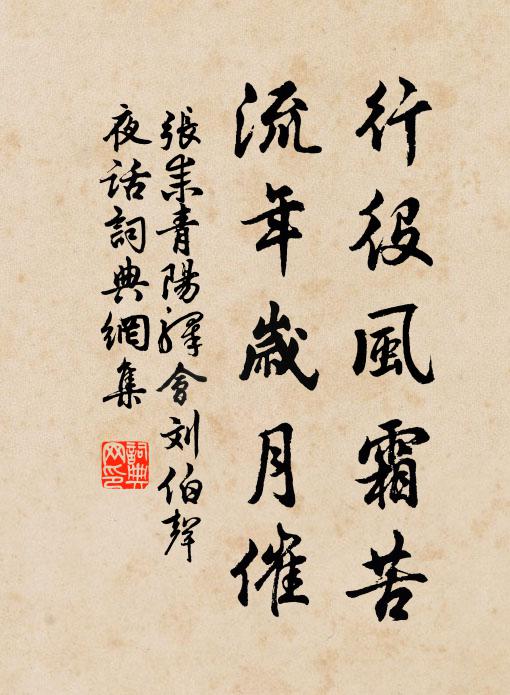 行役風霜苦
流年歲月催
張耒青陽驛會刘伯聲
夜話詞典網集
詞典
网印